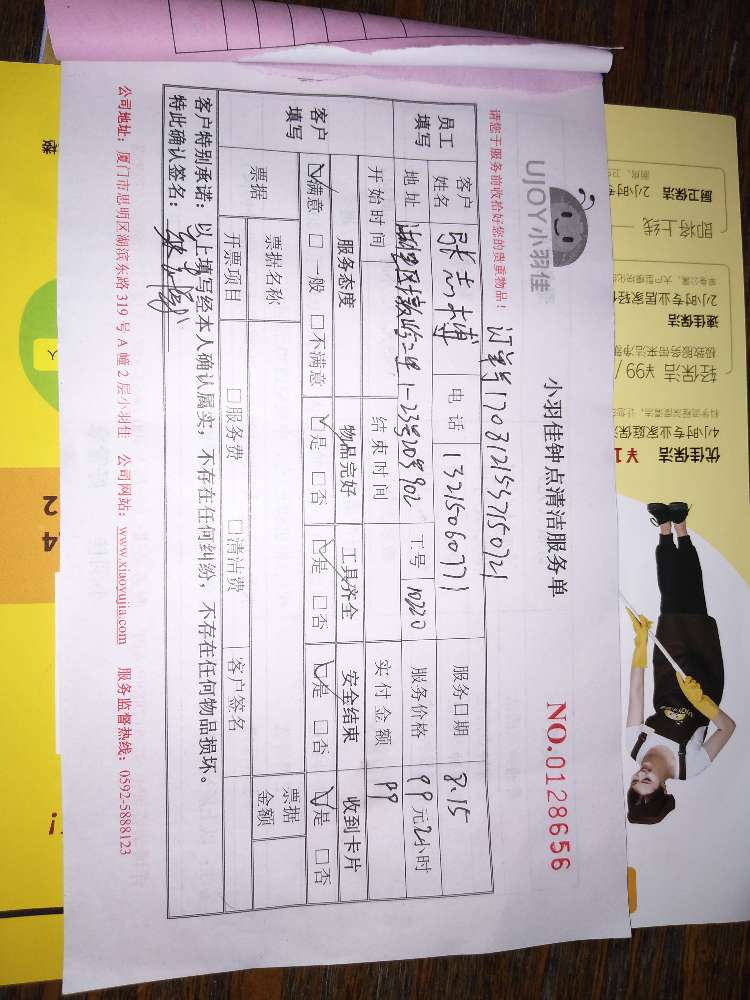 UJOY小羽佳
小羽佳钟点清洁服务单
NO.0128656
请您于服务前收拾好您的贵重物品!
订单号1708121537150721
员工填写
客户姓名
张志博
电话
13215060771
服务日期
8.15
地址
1-23号203902
工号
10220
服务价格
99元2小时
开始时间
结束时间
实付金额
99
客户填写
服务态度
物品完好
工具齐全
安全结束
收到卡片
☑满意 □一般 □不满意
☑是 □否
☑是 □否
☑是 □否
☑是 □否
票据
票据名称
客户签名
票据金额
开票项目
□服务费 □清洁费
客户特别承诺:以上填写经本人确认属实,不存在任何纠纷,不存在任何物品损坏。
特此确认签名:
公司地址:厦门市思明区湖滨东路319号A幢2层小羽佳 公司网站:www.xiaoyujia.com 服务监督热线:0592-5888123
厨卫保洁
2小时专
即将上线
2小时专业居家轻
速佳保洁
轻保洁 ¥99/
4小时专业家庭保
优佳保洁 ¥1